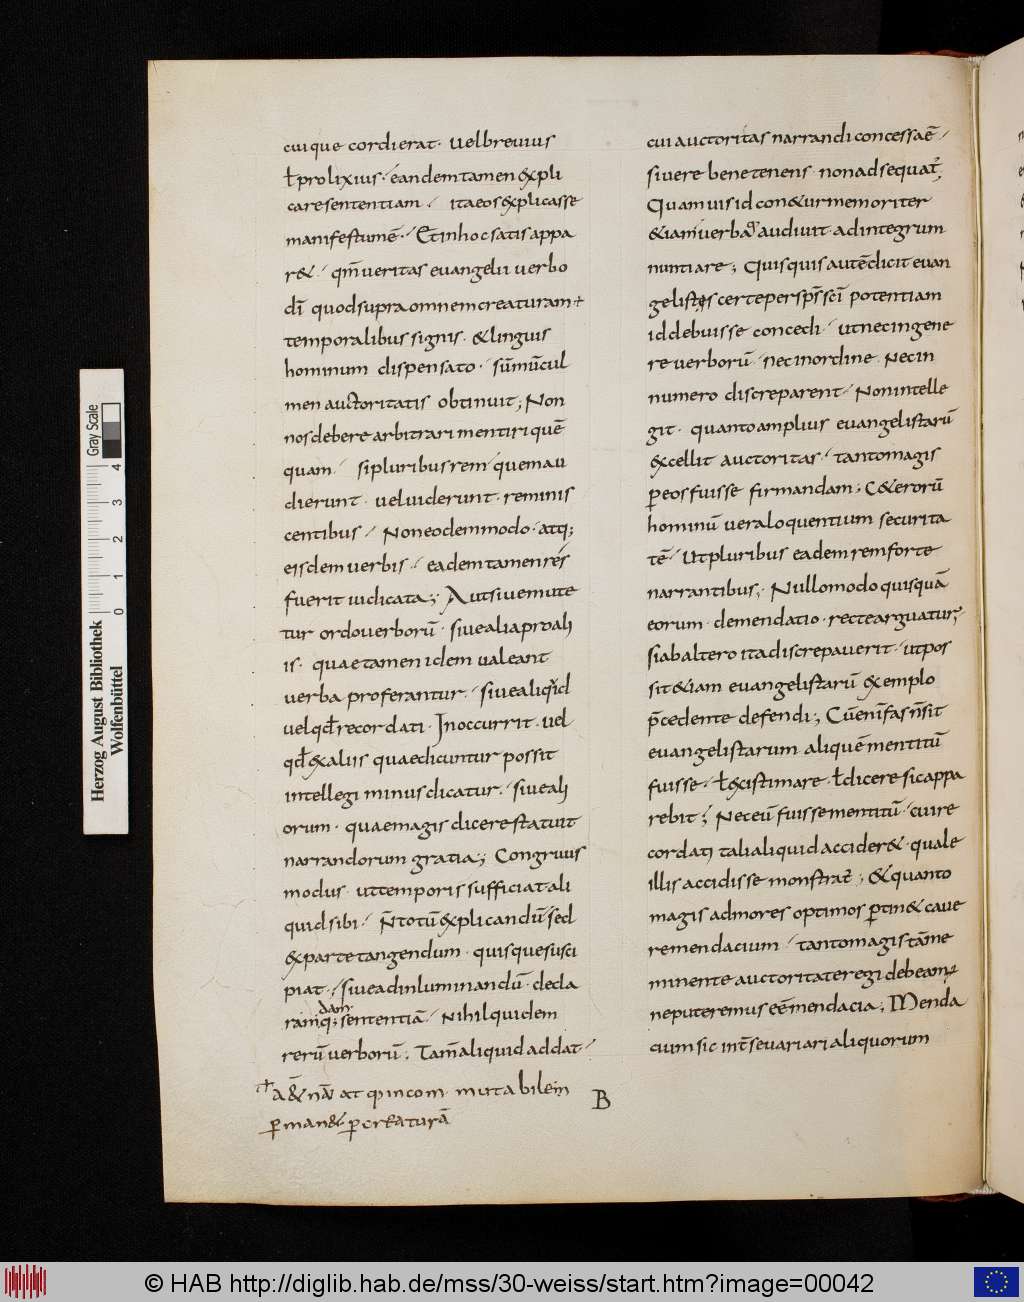 cuique cordierat· velbrevius
ł prolixius· eandemtamen expli
caresententiam· itaeos explicasse
manifestumē· Etinhocsatisappa
r&· qm̄ veritas evangelii verbo
dī quodsupraomnemcreaturam+
temporalibus signis· &linguis
hominum dispensato· sūmūcul
men auctoritatis obtinuit; Non
nosdebere arbitrari mentiri quē
quam· sipluribus rem quemau
dierunt· veluiderunt· reminis
centibus· Noneodemmodo· atq;
eisdem verbis· eademtamen res
fuerit iudicata; Autsivemute
tur ordoverborū· sivealiaproali
is· quaetamen idem valeant
verba proferantur· sivealiqid
velqđ recordati· Inoccurrit· vel
qđ exaliis quaedicuntur possit
intellegi minus dicatur· siveali
orum· quaemagis dicerestatuit
narrandorum gratia; Congruus
modus· uttemporis sufficiatali
quidsibi· Ñtotūexplicandū sed
exparte tangendum· quisquesusci
piat· siveadinluminandū· decla
dam·
ramq; sententiā· Nihilquidem
rerū verborū; Tam̄aliquidaddat·
cui auctoritas narrandi concessaē·
sivere bene tenens· nonadsequat᷑;
Quamvis id con&ur memoriter
&iam verba q̄ audivit· adintegrum
nuntiare; Quisquis autē dicit evan
gelistas certepersps̄ scī potentiam
id debuisse concedi· ut nec in gene
re verborū· nec inordine· Necin
numero discreparent· Nonintelle
git· quantoamplius evangelistarū
excellit auctoritas· tantomagis
peosfuisse firmandam; C&erorū
hominū veraloquentium securita
tē· Utpluribus eademremforte
narrantibus; Nullomodo quisquā
eorum· demendatio· rectearguatur;
siabaltero itadiscrepaverit· utpos
sit&iam evangelistarū exemplo
p̄cedente defendi; Cūenīfas ñsit
evangelistarum aliquē mentitū
fuisse· ł existimare· ł dicere sicappa
rebit; Neceū fuissementitū· cuire
cordati talialiquid accider&· quale
illis accidisse monstrat᷑; &quanto
magis admores optimos ptin& cave
remendacium· tantomagistāme
minente auctoritateregi debeam᷑
neputeremus eē mendacia; Menda
cium sic int̄sevariari aliquorum
B